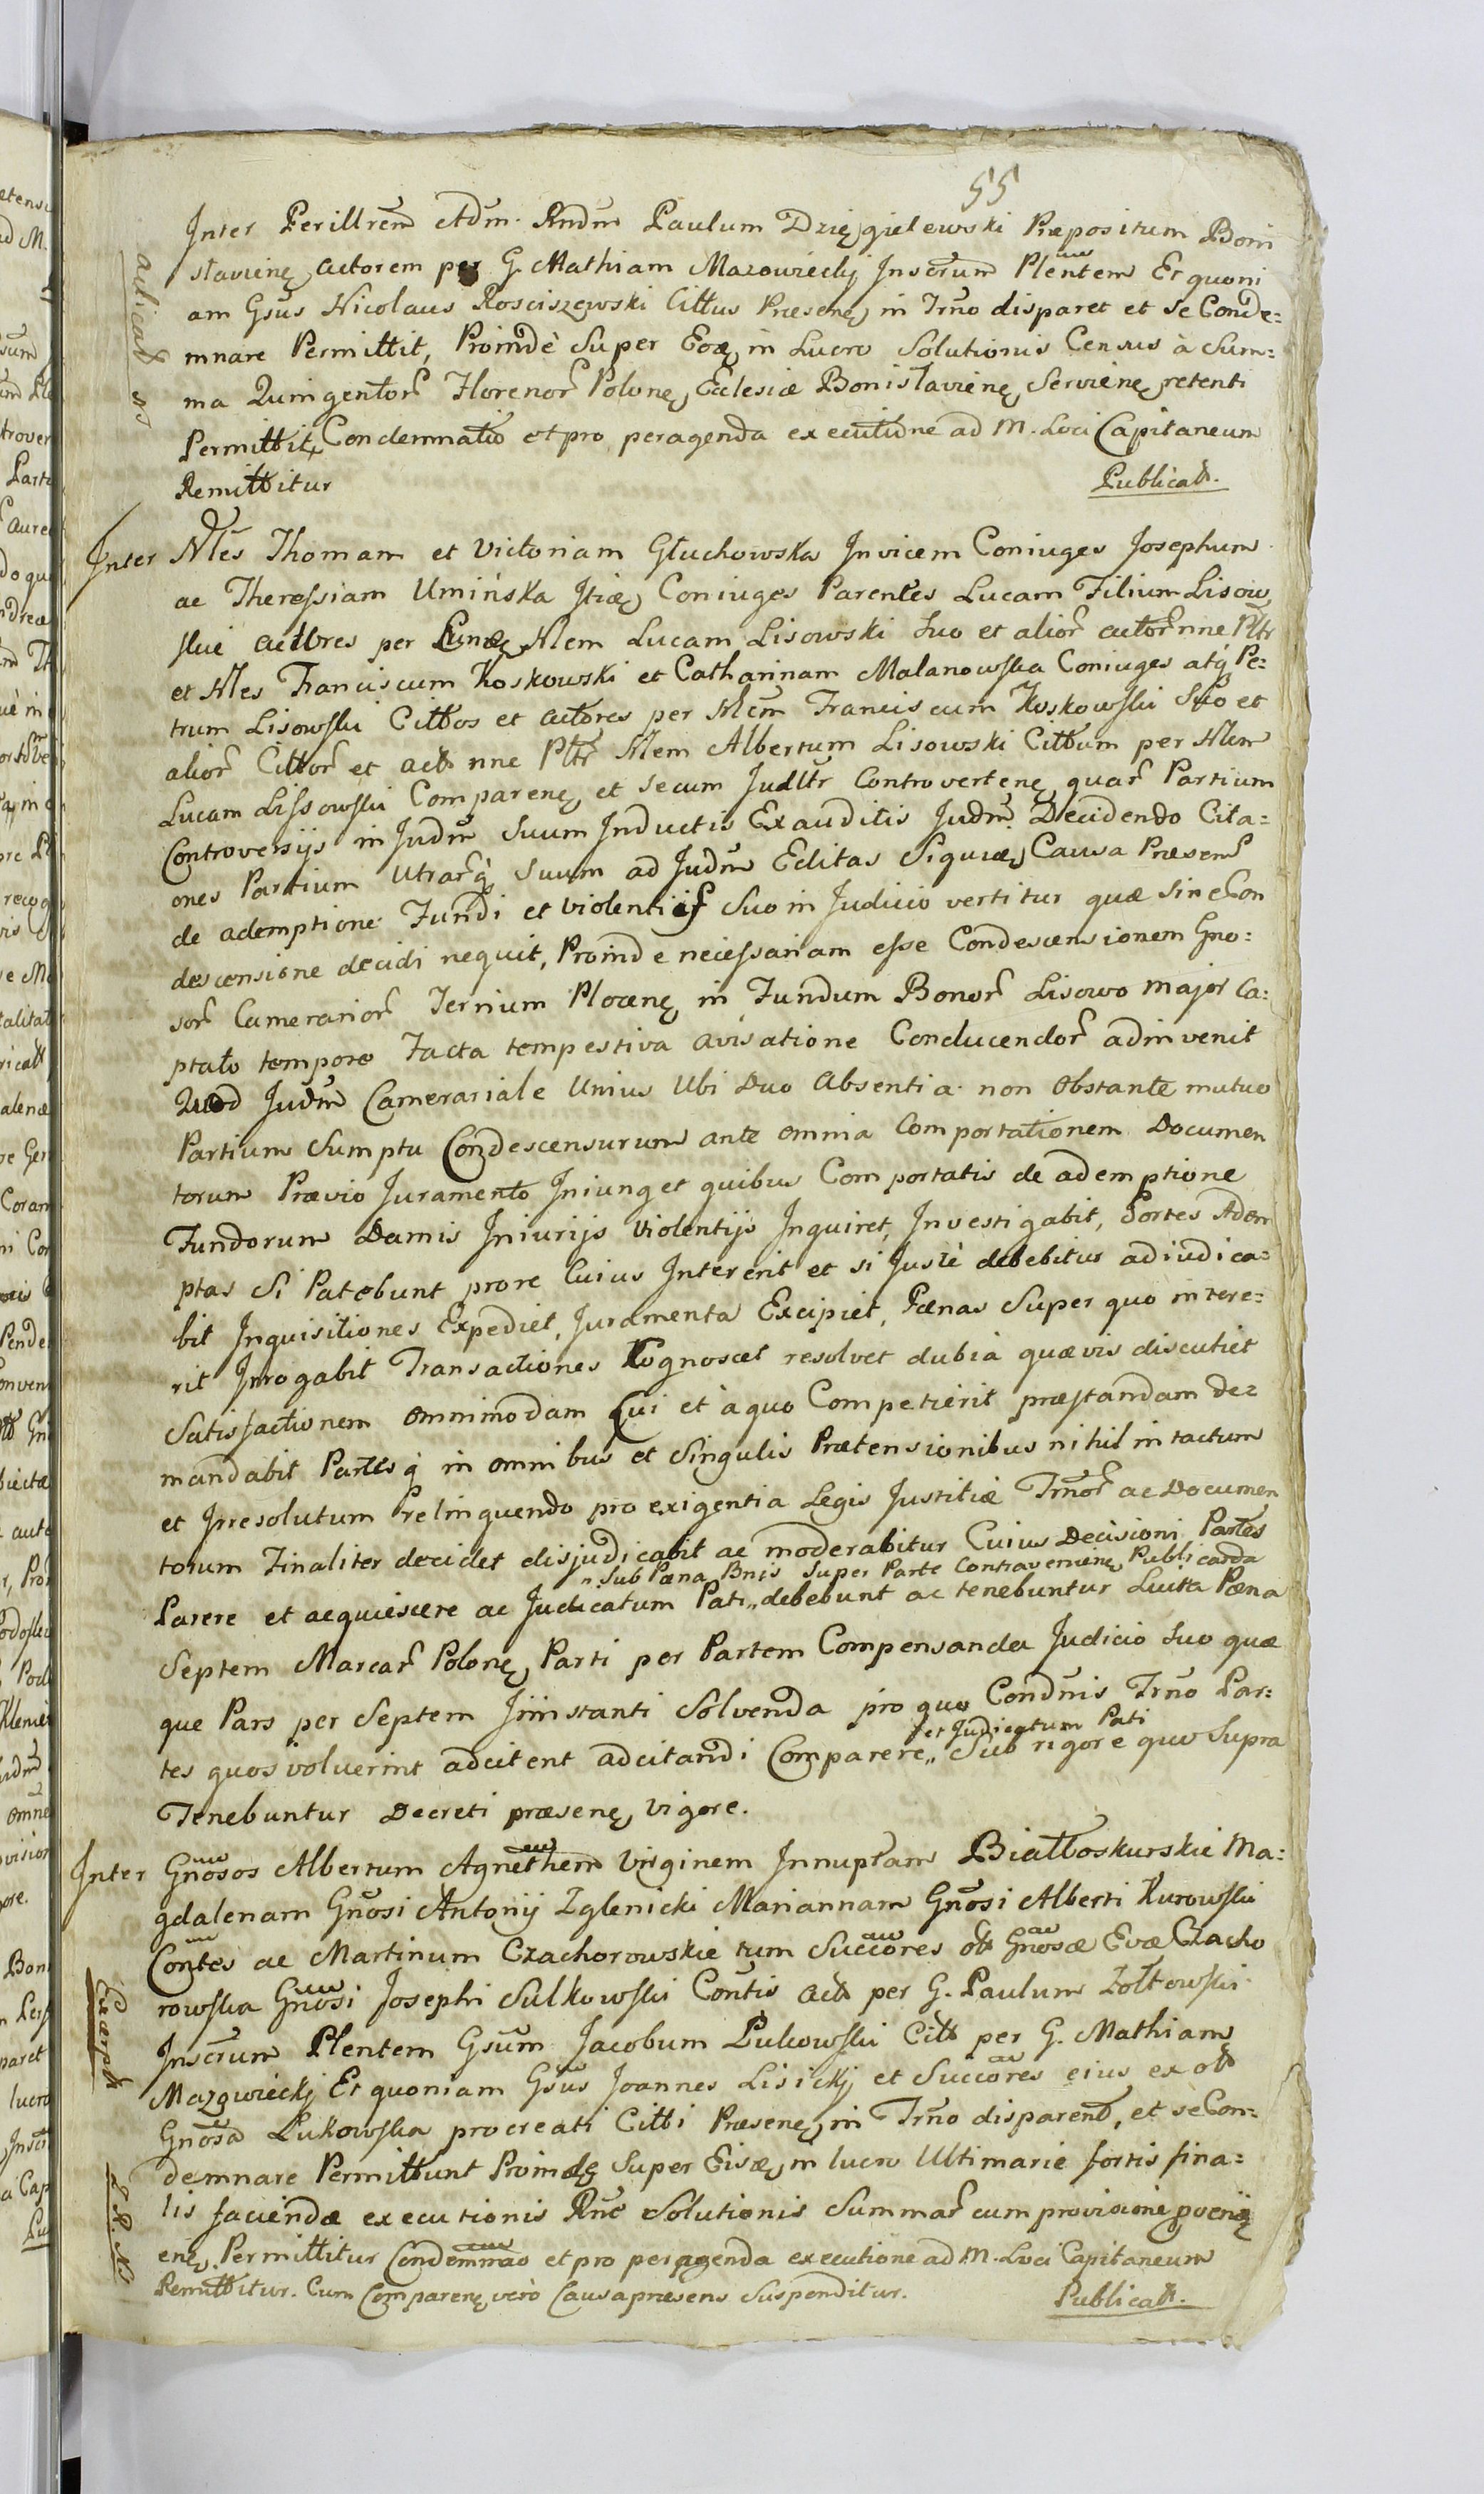 55
Inter Perillrem Adm. Rndm Paulum Dzięgielewski Præpositum Boni
slavienę, actorem per G. Mathiam Mazowieckj Inscrum Plentem Et quoni
am Gsus Nicolaus Rosciszewski Cittus Præsenę, in Trno disparet et se Conde=
mnare Permittit, Proinde Super Eoæ, in Lucro Solutionis Census à Sum=
ma Quingentor Florenor Polonę, Ecclesiæ Bonislavienę, Servienę, retenti
Permittit, Condemnatio et pro peragenda executione ad M. Loci Capitaneum
Remittitur
Publicatt.
Inter Nles Thomam et Victoriam Głuchowska Invicem Coniuges Josephum
ac Theressiam Umińska Itiæ, Coniuges Parentes Lucam Filium Lisow
skie acttores per Eunæ, Nlem Lucam Lisowski Suo et alior actor nne Pltr
et Nles Franciscum Koskowski et Catharinam Malanowska Coniuges atq Pe=
trum Lisowski Cittos et actores per Nlem Franciscum Koskowski Suo et
alior Cittor et actt nne Pltr Nlem Albertum Lisowski Cittum per Nlem
Lucam Lissowski Comparenę, et secum Judltr Controvertenę, quar Partium
Controversijs in Judm Suum Inductis Exauditis Judm Decidendo Cita=
ones Partium Utrarq Suum ad Judm Editas Siquiæ, Causa Præsens
de ademptione Fundi et violentiis Suo in Judicio vertitur quæ sine Con
descensione decidi nequit, Proinde necessariam esse Condescensionem Gno=
sor Camerarior Ternium Plocenę, in Fundum Bonor Lisowo major Ca=
ptato tempore Facta tempestiva avisatione Conducendor adinvenit
Quod Judm Camerariale Unius Ubi Duo Absentia non Obstante mutuo
Partium Sumptu Condescensurum ante omnia Comportationem Documen
torum Prævio Juramento Iniunget quibus Comportatis de ademptione
Fundorum Damis Iniurijs Violentijs Inquiret, Investigabit, Sortes Adem
ptas Si Patebunt prore Cuius Intererit et si Juste debebitur adiudica=
bit Inquisitiones Expediet, Juramenta Excipiet, Pœnas Super quo intere=
rit Irrogabit Transactiones Kognoscet resolvet dubia quævis discutiet
Satisfactionem omnimodam Cui et à quo Competierit præstandam de=
mandabit Partes q in omnibus et Singulis Prætensionibus nihil intactum
et Irresolutum relinquendo pro exigentia Legis Justitiæ Trnor ac Documen
torum Finaliter decidet disjudicabit ac moderabitur Cuius Decisioni Partes
„ Sub Pœna Bnis Super Parte Contravenienę, Publicanda
Parere et acquiescere ac Judicatum Pati „ debebunt ac tenebuntur Luita Pœna
Septem Marcar Polonę, Parti per Partem Compensanda Judicio Suo quæ
que Pars per Septem Iinstanti Solvenda pro quo Condnis Trno Par=
et Judicatum Pati
tes quos voluerint adcitent adcitandi Comparere „ Sub rigore quo Supra
Tenebuntur Decreti præsenę, vigore.
Inter Gnosos Albertum Agnethem Virginem Innuptam Białłoskurskie Ma=
gdalenam Gnosi Antonij Zglenicki Mariannam Gnosi Alberti Kurowski
Contes ac Martinum Czachorowskie tum Succores ott Gnosæ Evæ Czacho
rowska Gnosi Josephi Sulkowski Contis actt per G. Paulum Żołtowski
Inscrum Plentem Gsum Jacobum Łukowski Citt per G. Mathiam
Mazowieckj Et quoniam Gsus Joannes Lisickj et Succores eius ex ott
Gnosa Łukowska procreati Citti Præsenę, in Trno disparent, et se Con=
demnare Permittunt Proinde Super Eisæ, in lucro Ultimarie fortis fina=
lis faciendæ executionis Rnt Solutionis Summar cum provisione
enę, Permittitur Condemnao et pro peragenda executione ad M. Loci Capitaneum
Remittitur. Cum Comparenę, verò Causa præsens Suspenditur.
Publicatt.